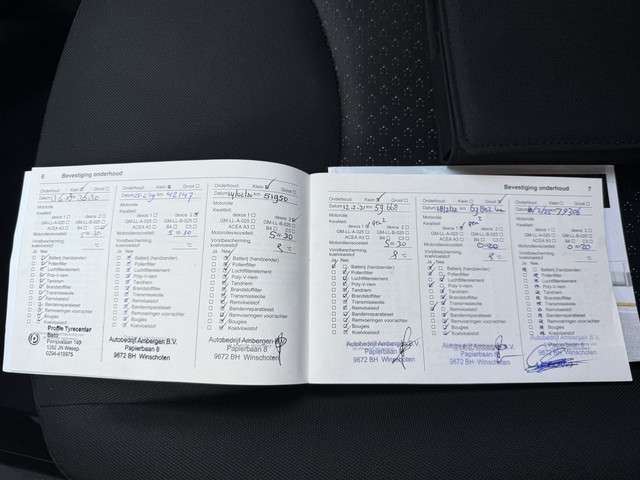 6 Bevestiging onderhoud
Onderhoud: Klein Groot
Datum km
Motorolie
Kwaliteit:
dexos 1 dexos 2
GM-LL-A-025 GM-LL-B-025
ACEA A3 B4 C3
Motorolieviscositeit
Vorstbescherming
koelvloeistof
Ja Nee
Batterij (handzender)
Pollenfilter
Luchtfilterelement
Poly-V-riem
Tandriem
Brandstoffilter
Transmissieolie
Remvloeistof
Bandenreparatieset
Remvoeringen voor/achter
Bougies
Koelvloeistof
Profile Tyrecenter
1382 JN Weesp
0294-418975
Onderhoud: Klein Groot
Datum km 42147
Motorolie
Kwaliteit:
dexos 1 dexos 2
GM-LL-A-025 GM-LL-B-025
ACEA A3 B4 C3
Motorolieviscositeit 5-30
Vorstbescherming
koelvloeistof
Ja Nee
Batterij (handzender)
Pollenfilter
Luchtfilterelement
Poly-V-riem
Tandriem
Brandstoffilter
Transmissieolie
Remvloeistof
Bandenreparatieset
Remvoeringen voor/achter
Bougies
Koelvloeistof
Autobedrijf Ambergen B.V.
Papierbaan 8
9672 BH Winschoten
Onderhoud: Klein Groot
Datum km 51950
Motorolie
Kwaliteit:
dexos 1 dexos 2
GM-LL-A-025 GM-LL-B-025
ACEA A3 B4 C3
Motorolieviscositeit 5-30
Vorstbescherming
koelvloeistof
Ja Nee
Batterij (handzender)
Pollenfilter
Luchtfilterelement
Poly-V-riem
Tandriem
Brandstoffilter
Transmissieolie
Remvloeistof
Bandenreparatieset
Remvoeringen voor/achter
Bougies
Koelvloeistof
Autobedrijf Ambergen B.V.
Papierbaan 8
9672 BH Winschoten
Bevestiging onderhoud 7
Onderhoud: Klein Groot
Datum km 59668
Motorolie
Kwaliteit:
dexos 1 dexos 2
GM-LL-A-025 GM-LL-B-025
ACEA A3 B4 C3
Motorolieviscositeit 5-30
Vorstbescherming
koelvloeistof
Ja Nee
Batterij (handzender)
Pollenfilter
Luchtfilterelement
Poly-V-riem
Tandriem
Brandstoffilter
Transmissieolie
Remvloeistof
Bandenreparatieset
Remvoeringen voor/achter
Bougies
Koelvloeistof
Autobedrijf Ambergen B.V.
Papierbaan 8
9672 BH Winschoten
Onderhoud: Klein Groot
Datum km
Motorolie
Kwaliteit:
dexos 1 dexos 2
GM-LL-A-025 GM-LL-B-025
ACEA A3 B4 C3
Motorolieviscositeit 0-20
Vorstbescherming
koelvloeistof
Ja Nee
Batterij (handzender)
Pollenfilter
Luchtfilterelement
Poly-V-riem
Tandriem
Brandstoffilter
Transmissieolie
Remvloeistof
Bandenreparatieset
Remvoeringen voor/achter
Bougies
Koelvloeistof
Autobedrijf Ambergen B.V.
Papierbaan 8
9672 BH Winschoten
Onderhoud: Klein Groot
Datum
Motorolie
Kwaliteit:
dexos 1 dexos 2
GM-LL-A-025 GM-LL-B-025
ACEA A3 B4 C3
Motorolieviscositeit 0-20
Vorstbescherming
koelvloeistof
Ja Nee
Batterij (handzender)
Pollenfilter
Luchtfilterelement
Poly-V-riem
Tandriem
Brandstoffilter
Transmissieolie
Remvloeistof
Bandenreparatieset
Remvoeringen voor/achter
Bougies
Koelvloeistof
Autobedrijf Ambergen B.V.
Papierbaan 8
9672 BH Winschoten